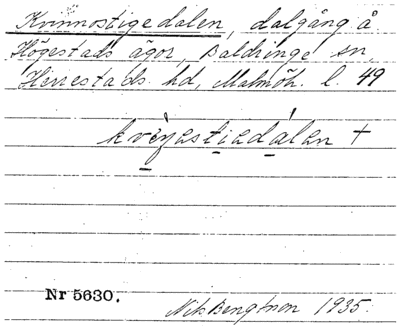 Kvinnostigedalen, dalgång å
Högestads ägor, Baldringe sn,
Herrestads hd, Malmöh. l. 49
kvinestiedalen +
Nr 5630.
Nils Bengtsson 1935.